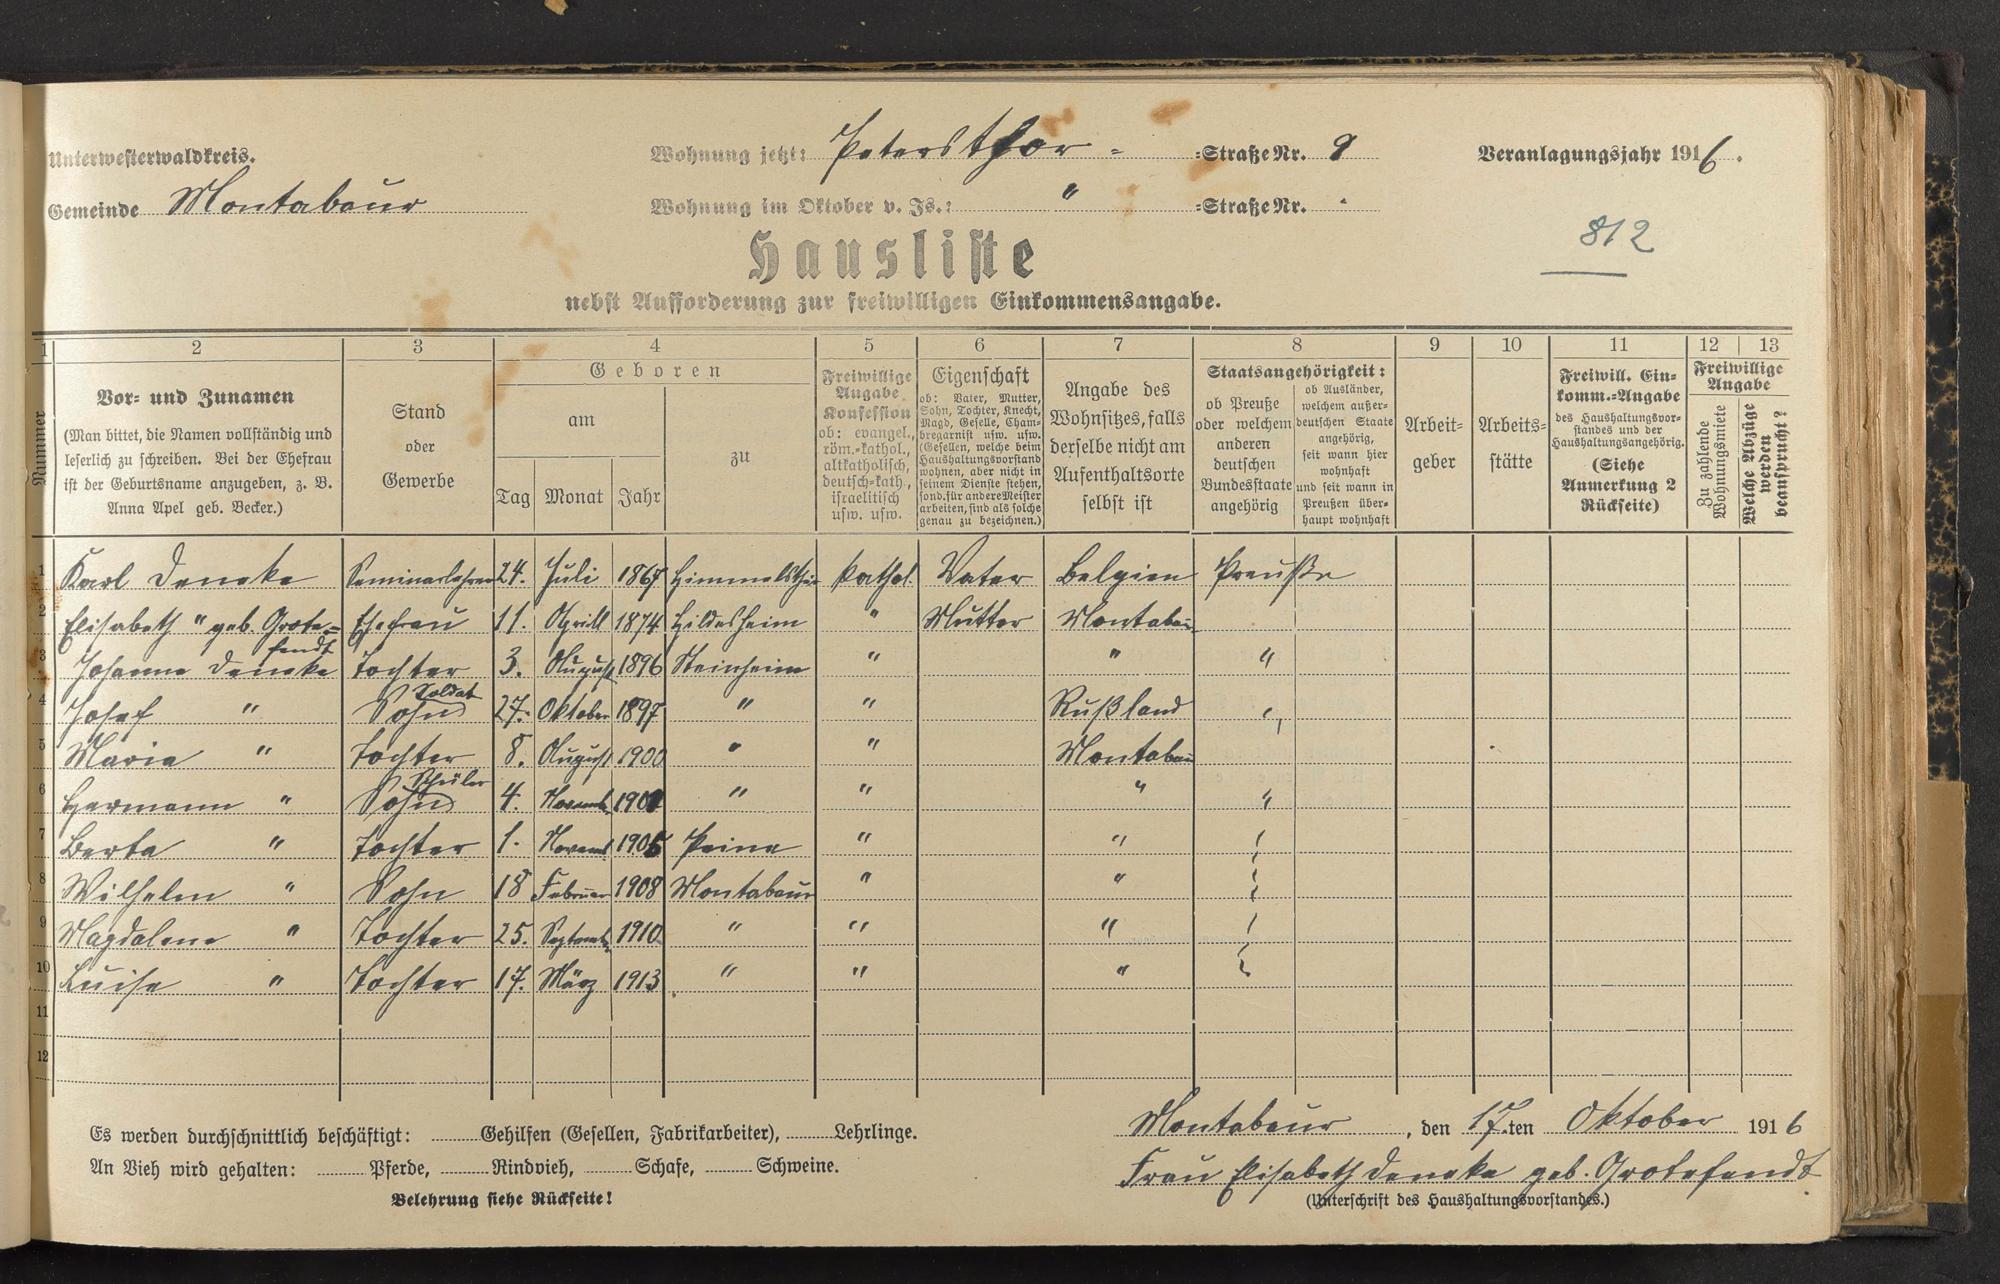 Unterwesterwaldkreis. Wohnung jetzt: Petersthor- =Straße Nr. 9 Veranlagungsjahr 1916.
Gemeinde Montabaur Wohnung im Oktober v. Js.: " =Straße Nr.
812
Hausliste
nebst Aufforderung zur freiwilligen Einkommensangabe.
1 2 3 4 5 6 7 8 9 10 11 12 13
Nummer
Vor- und Zunamen
(Man bittet, die Namen vollständig und
leserlich zu schreiben. Bei der Ehefrau
ist der Geburtsname anzugeben, z. B.
Anna Apel geb. Becker.)
Stand
oder
Gewerbe
Geboren
am
Tag Monat Jahr
zu
Freiwillige
Angabe
Konfession
ob: evangel.,
röm.-kathol.,
altkatholisch,
deutsch-kath.,
israelitisch
usw. usw.
Eigenschaft
ob: Vater, Mutter,
Sohn, Tochter, Knecht,
Magd, Geselle, Cham-
bregarnist usw. usw.
(Gesellen, welche beim
Haushaltungsvorstand
wohnen, aber nicht in
seinem Dienste stehen,
sond. für andere Meister
arbeiten, sind als solche
genau zu bezeichnen.)
Angabe des
Wohnsitzes, falls
derselbe nicht am
Aufenthaltsorte
selbst ist
Staatsangehörigkeit:
ob Preuße
oder welchem
anderen
deutschen
Bundesstaate
angehörig
ob Ausländer,
welchem außer-
deutschen Staate
angehörig,
seit wann hier
wohnhaft
und seit wann in
Preußen über-
haupt wohnhaft
Arbeit-
geber
Arbeits-
stätte
Freiwill. Ein-
komm.-Angabe
des Haushaltungsvor-
standes und der
Haushaltungsangehörig.
(Siehe
Anmerkung 2
Rückseite)
Freiwillige
Angabe
Zu zahlende
Wohnungsmiete
Welche Abzüge
werden
beansprucht?
1 Karl Deneke Seminarlehrer 24. Juli 1867 Himmelsthür kathol. Vater Belgien Preuße
2 Elisabeth " geb. Grote- Ehefrau 11. April 1874 Hildesheim " Mutter Montabaur
fendt
3 Johanna Deneke Tochter 3. August 1896 Steinheim " " "
Soldat
4 Josef " Sohn 27. Oktober 1897 " " Rußland "
5 Maria " Tochter 8. August 1900 " " Montabaur
Schüler
6 Hermann " Sohn 4. Novemb. " " " "
7 Berta " Tochter 1. Novemb. Peine " " "
8 Wilhelm " Sohn 18 Februar 1908 Montabaur " " "
9 Magdalene " Tochter 25. Septemb. 1910 " " " "
10 Luise " Tochter 17. März 1913 " " " "
11
12
Es werden durchschnittlich beschäftigt: Gehilfen (Gesellen, Fabrikarbeiter), Lehrlinge.
An Vieh wird gehalten: Pferde, Rindvieh, Schafe, Schweine.
Belehrung siehe Rückseite!
Montabaur, den 17.ten Oktober 1916
Frau Elisabeth Deneke geb. Grotefendt
(Unterschrift des Haushaltungsvorstandes.)